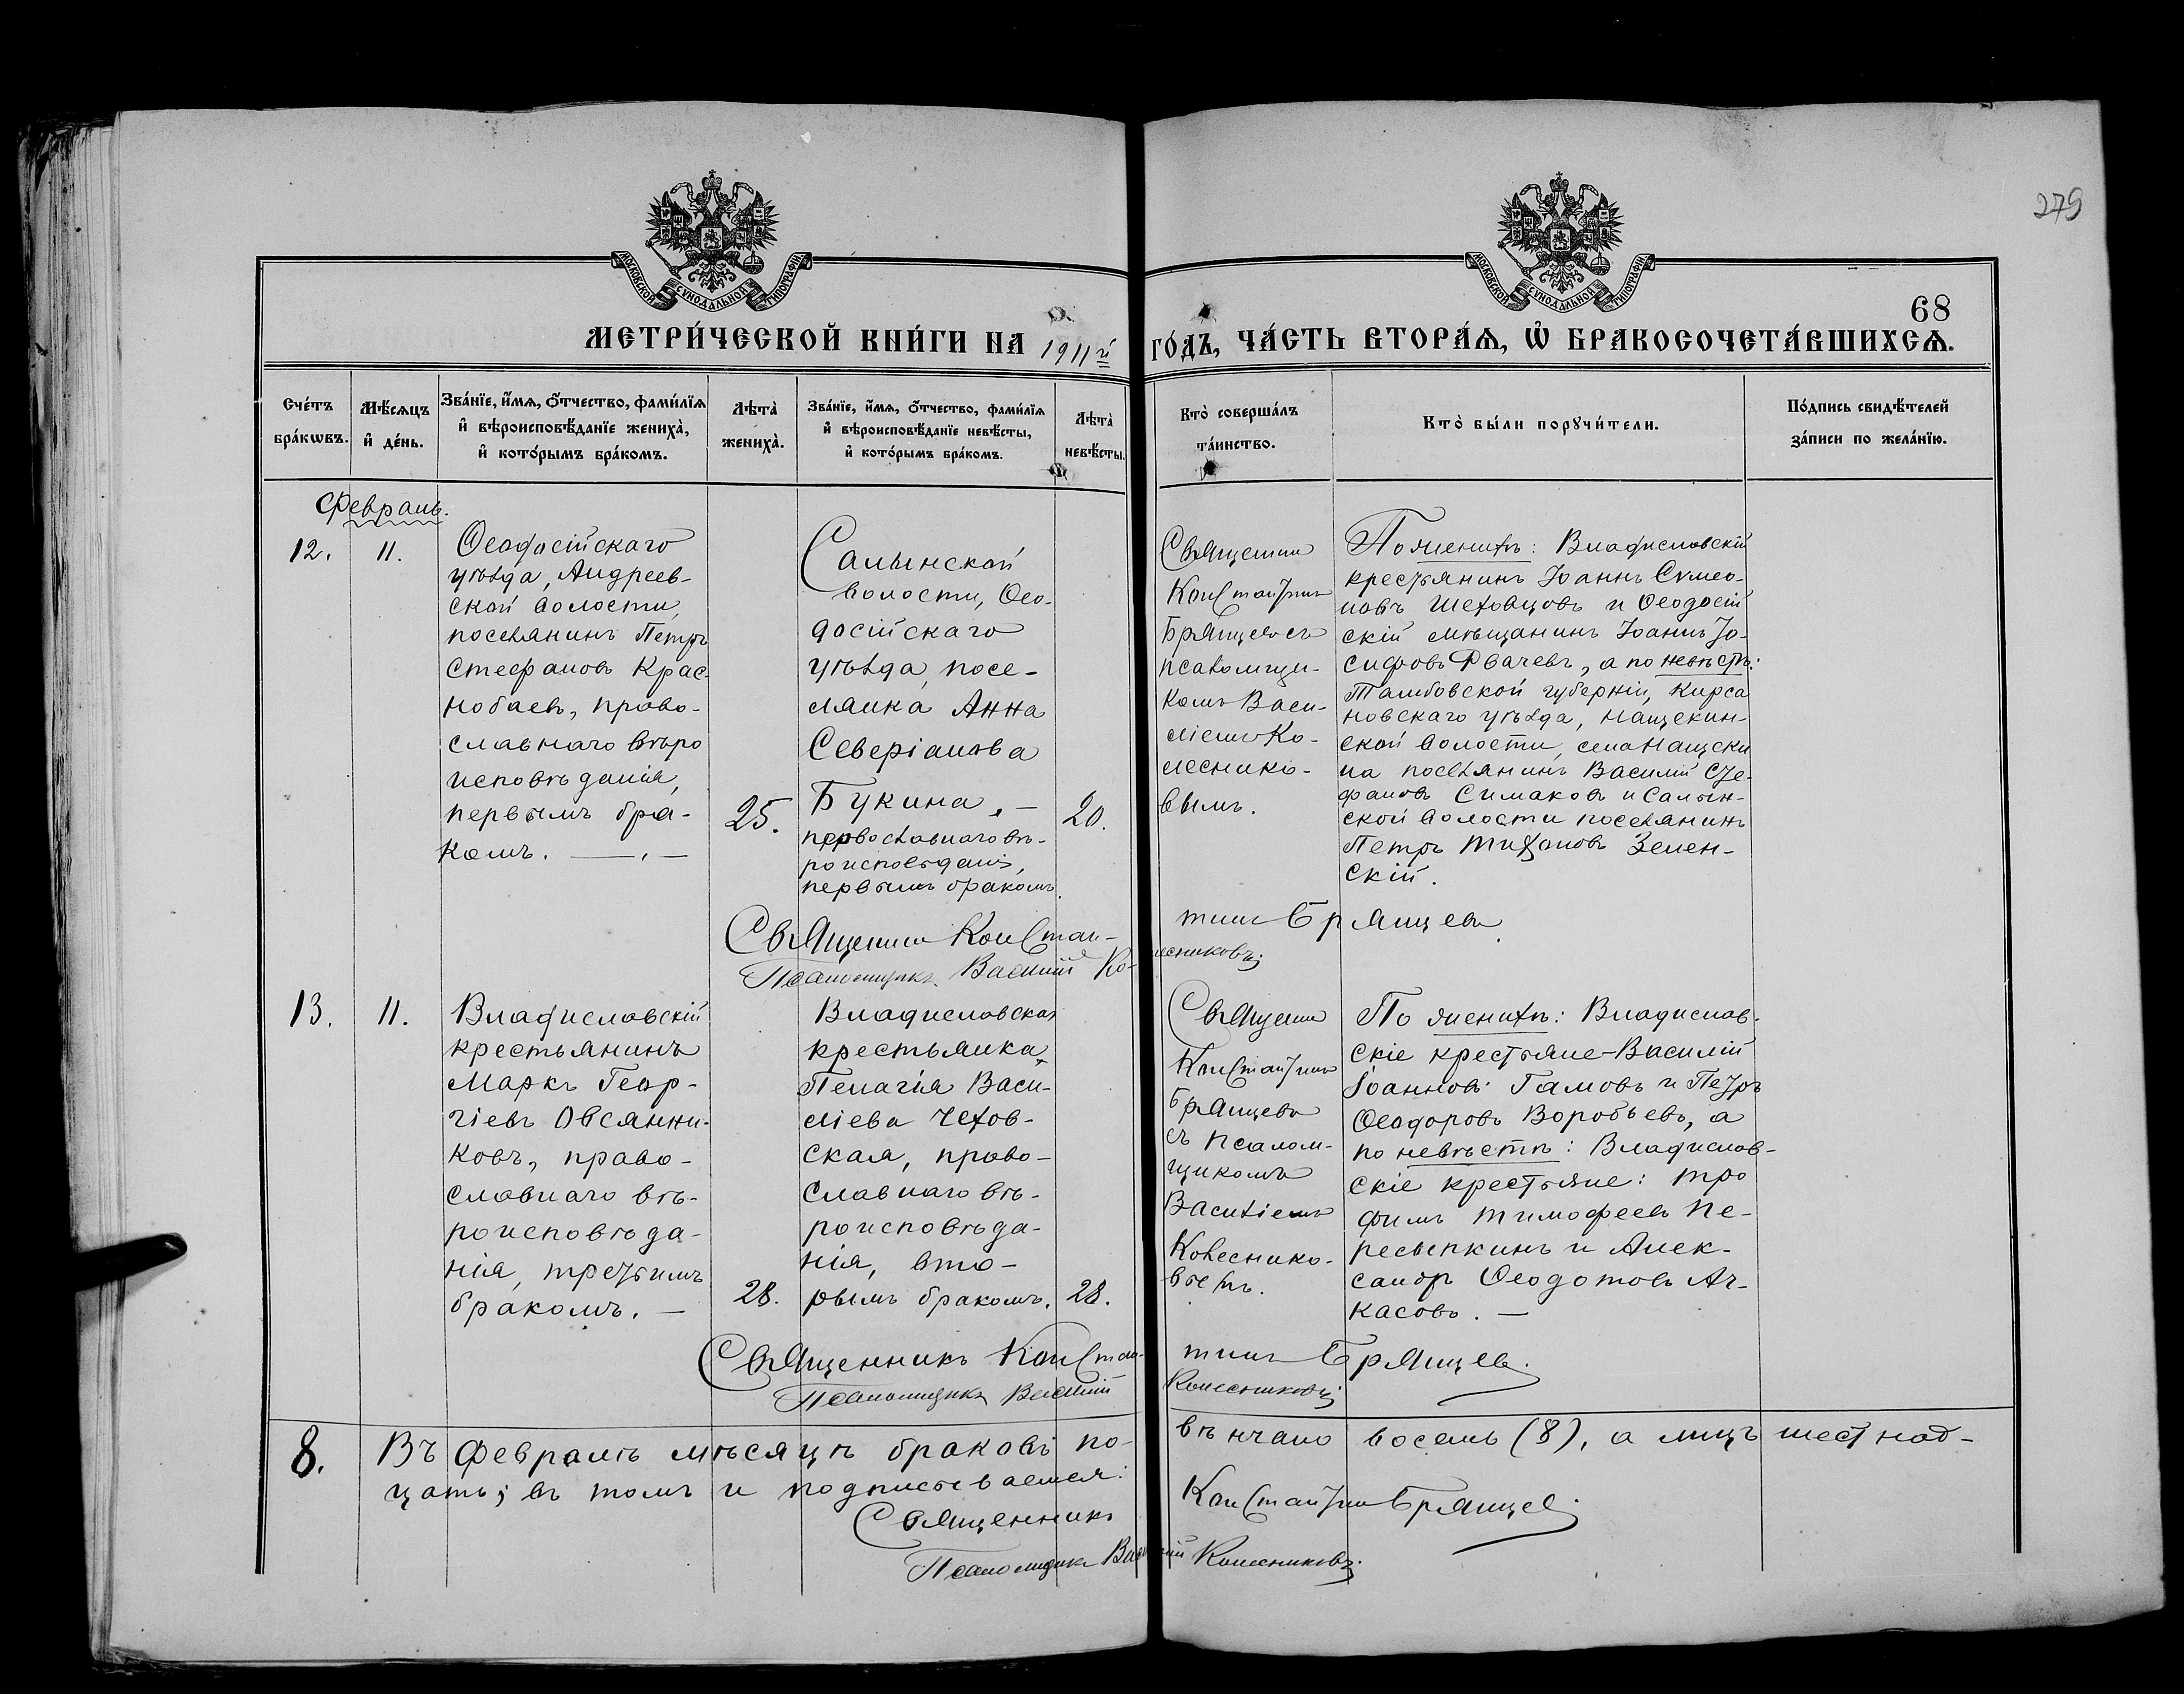 279
МОСКОВСКОЙ СУНОДАЛЬНОЙ ТИПОГРАФІИ
МОСКОВСКОЙ СУНОДАЛЬНОЙ ТИПОГРАФІИ
68
МЕТРИ́ЧЕСКОЙ КНИ́ГИ НА 1911й ГО́ДЪ, ЧА́СТЬ ВТОРА́Ѧ, Ѽ БРАКОСОЧЕТА́ВШИХСѦ.
Сче́тъ
бра́кѡвъ.
Мѣ́сѧцъ
и҆ де́нь.
Зва́нїе, и҆́мѧ, ѻ҆́тчество, фами́лїѧ
и҆ вѣроисповѣ́данїе жениха̀,
и҆ кото́рымъ бра́комъ.
Лѣ́та
жениха̀.
Зва́нїе, и҆́мѧ, ѻ҆́тчество, фами́лїѧ
и҆ вѣроисповѣ́данїе невѣ́сты,
и҆ кото́рымъ бра́комъ.
Лѣ́та
невѣ́сты.
Кто̀ соверша́лъ
та́инство.
Кто̀ бы́ли порꙋчи́тели.
По́дпись свидѣ́телей
за́писи по жела́нїю.
Февраль.
12.
11.
Ѳеодосійскаго
уѣзда, Андреев-
ской волости,
поселянинъ Петръ
Стефановъ Крас-
нобаевъ, право-
славнаго вѣро
исповѣданія,
первымъ бра-
комъ. —
25.
Салынской
волости, Ѳео-
досійскаго
уѣзда, посе-
лянка Анна
Северіанова
Букина, —
православнаго вѣ-
роисповѣданія,
первымъ бракомъ.
20.
Священник
Константин
Брянцевъ съ
псаломщи-
комъ Васи-
ліемъ Ко-
леснико-
вымъ.
По женихѣ: Владиславскій
крестьянинъ Іоаннъ Сумео-
новъ Шеховцовъ и Ѳеодосій
скій мѣщанинъ Іоаннъ Іо-
сифовъ Рвачевъ, а по невѣстѣ:
Тамбовской губерніи, Кирса
новскаго уѣзда, Нащекин-
ской волости, села Нащеки
на поселянинъ Василій Сте-
фановъ Симаковъ и Салын-
ской волости поселянинъ
Петръ Тихоновъ Зелен-
скій.
Священник Констан-тинъ Брянцевъ.
Псаломщикъ Василій Ко-лесниковъ;
13.
11.
Владиславскій
крестьянинъ
Маркъ Геор-
гіевъ Овсянни-
ковъ, право-
славнаго вѣ-
роисповѣда-
нія, третьимъ
бракомъ. —
28.
Владиславская
крестьянка
Пелагія Васи-
ліева Чехов-
ская, право-
славнаго вѣ-
роисповѣда-
нія, вто-
рымъ бракомъ.
28.
Священник
Константинъ
Брянцевъ
съ псалом-
щикомъ
Василіемъ
Колеснико-
вымъ.
По женихѣ: Владислав-
скіе крестьяне-Василій
Іоанновъ Гамовъ и Петръ
Ѳеодоровъ Воробьевъ, а
по невѣстѣ: Владислав-
скіе крестьяне: Тро
фимъ Тимофеевъ Пе-
ресыпкинъ и Алек-
сандръ Ѳеодотовъ Ач-
касовъ. —
Священникъ Констан-тинъ Брянцевъ.
Псаломщикъ Василій Колесниковъ;
8.
Въ Февралѣ мѣсяцѣ браковъ по-вѣнчано восемь (8), а лицъ шестнад-
цать; въ томъ и подписываемся:
Священникъ Константинъ Брянцев.
Псаломщикъ Василій Колесниковъ.